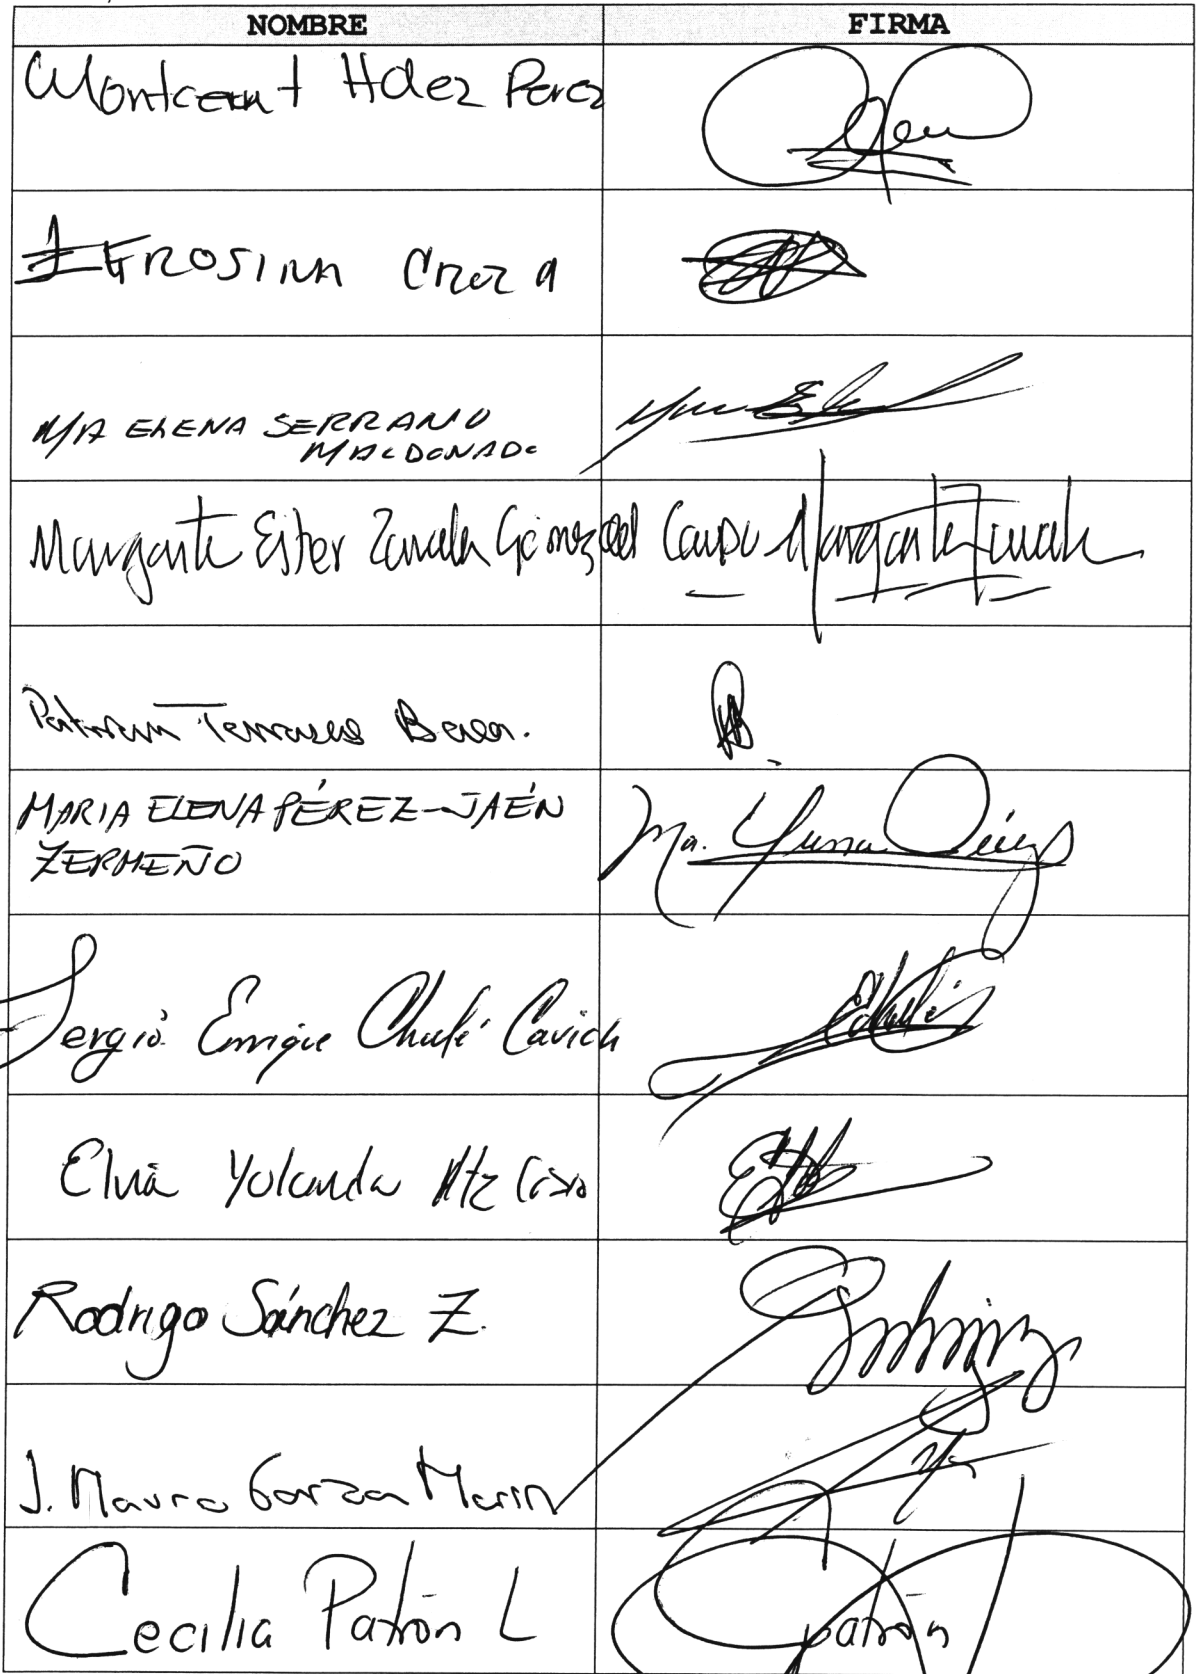 NOMBRE FIRMA
Montserrat Hdez Perez
EFROSINA CRUZ
MA ELENA SERRANO
MALDONADO
Margarita Ester Zavala Gómez del Campo Margarita Zavala
Patricia Terrazas Baca.
MARIA ELENA PÉREZ-JAÉN Ma. Elena Pérez
ZERMEÑO
Sergio Enrique Chalé Cauich EChalé
Elvia Yolanda Mtz Cosío
Rodrigo Sánchez Z.
J. Mauro Garza Marín
Cecilia Patrón L CPatrón